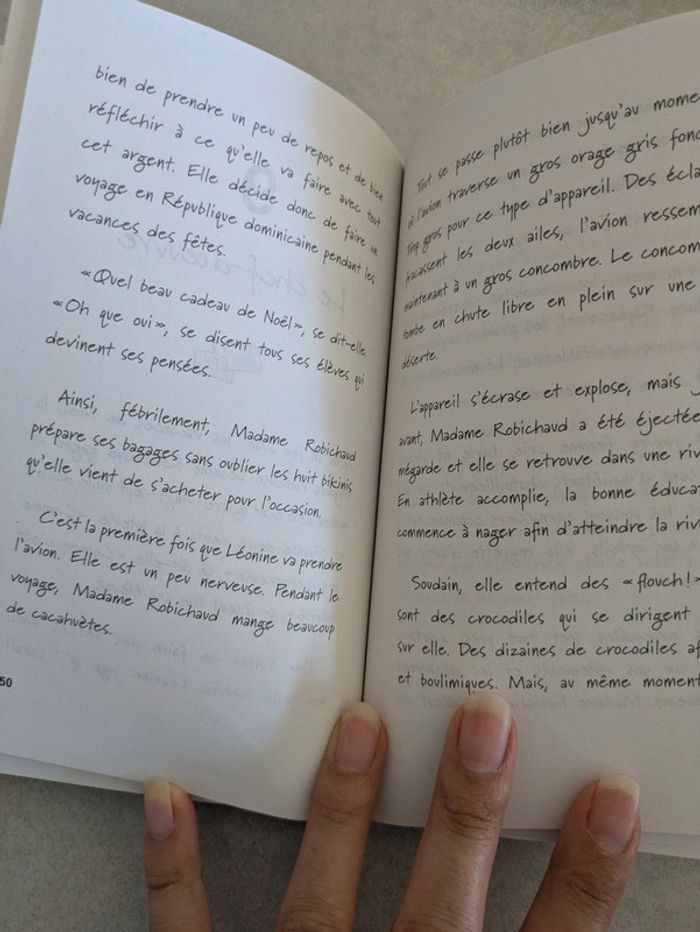 bien de prendre un peu de repos et de bien
réfléchir à ce qu'elle va faire avec tout
cet argent. Elle décide donc de faire un
voyage en République dominicaine pendant les
vacances des fêtes.
«Quel beau cadeau de Noël», se dit-elle.
«Oh que oui», se disent tous ses élèves qui
devinent ses pensées.
Ainsi, fébrilement, Madame Robichaud
prépare ses bagages sans oublier les huit bikinis
qu'elle vient de s'acheter pour l'occasion.
C'est la première fois que Léonine va prendre
l'avion. Elle est un peu nerveuse. Pendant le
voyage, Madame Robichaud mange beaucoup
de cacahuètes.
50
Tout se passe plutôt bien jusqu'au mome
où l'avion traverse un gros orage gris fonc
Trop gros pour ce type d'appareil. Des écla
fracassent les deux ailes, l'avion ressem
maintenant à un gros concombre. Le concom
tombe en chute libre en plein sur une
déserte.
L'appareil s'écrase et explose, mais j
avant, Madame Robichaud a été éjectée
mégarde et elle se retrouve dans une riv
En athlète accomplie, la bonne éduca
commence à nager afin d'atteindre la riv
Soudain, elle entend des «flouch!»
sont des crocodiles qui se dirigent
sur elle. Des dizaines de crocodiles af
et boulimiques. Mais, au même moment